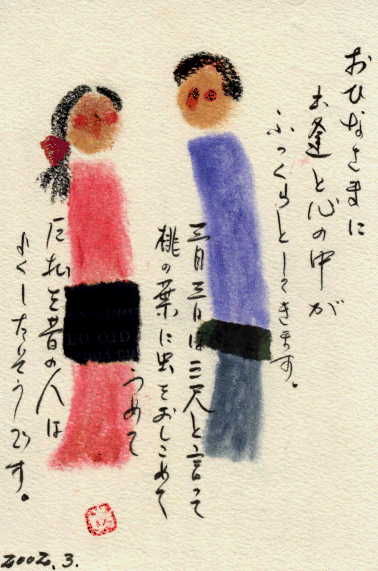 おひなさまに
お逢と心の中が
ふっくらとしてきます。
三月三日は三尺と言って
桃の葉に虫をおしこめて
うめて
厄払を昔の人は
よくしたそうです。
2002.3.